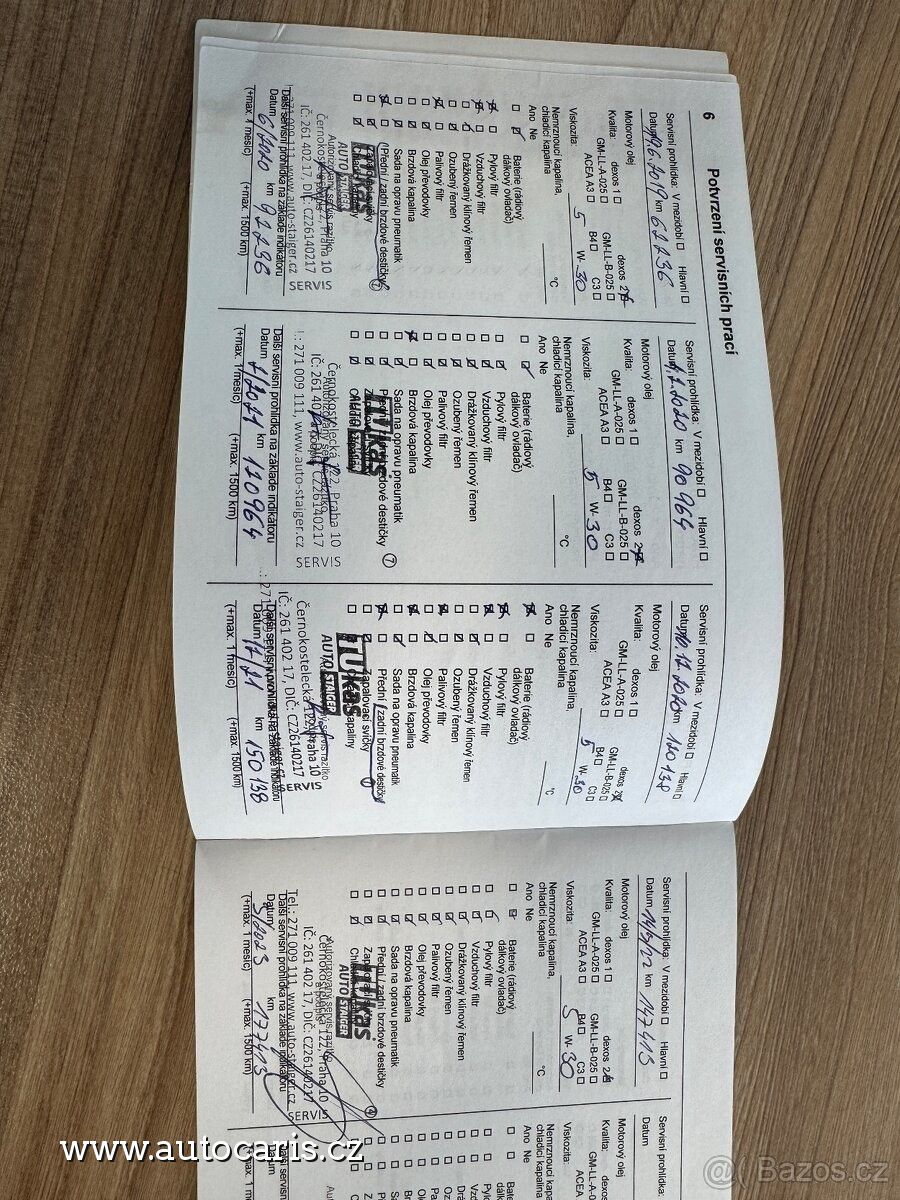 6 Potvrzení servisních prací
Servisní prohlídka: V mezidobí Hlavní
Datum 19.6.2019 km
Motorový olej
Kvalita: dexos 1 dexos 2
GM-LL-A-025 GM-LL-B-025
ACEA A3 B4 C3
Viskozita: 5 W- 30
Nemrznoucí kapalina,
chladicí kapalina °C
Ano Ne
Baterie (rádiový
dálkový ovladač)
Pylový filtr
Vzduchový filtr
Drážkový klínový řemen
Ozubený řemen
Palivový filtr
Olej převodovky
Brzdová kapalina
Sada na opravu pneumatik
Přední / zadní brzdové destičky
TUkas
AUTO STAIGER
Autorizovaný servis razítko
Černokostelecká 122, Praha 10
IČ: 261 402 17, DIČ: CZ26140217
271 009 111, www.auto-staiger.cz
SERVIS
Další servisní prohlídka na základě indikátoru
Datum 6/2020 km 92236
(+max. 1 měsíc) (+max. 1500 km)
Servisní prohlídka: V mezidobí Hlavní
Datum km 90 964
Motorový olej
Kvalita: dexos 1 dexos 2
GM-LL-A-025 GM-LL-B-025
ACEA A3 B4 C3
Viskozita: 5 W- 30
Nemrznoucí kapalina,
chladicí kapalina °C
Ano Ne
Baterie (rádiový
dálkový ovladač)
Pylový filtr
Vzduchový filtr
Drážkový klínový řemen
Ozubený řemen
Palivový filtr
Olej převodovky
Brzdová kapalina
Sada na opravu pneumatik
TUkas
AUTO STAIGER
Černokostelecká 122, Praha 10
IČ: 261 402 17, DIČ: CZ26140217
: 271 009 111, www.auto-staiger.cz
SERVIS
Další servisní prohlídka na základě indikátoru
Datum 1/2021 km 110964
(+max. 1 měsíc) (+max. 1500 km)
Servisní prohlídka: V mezidobí Hlavní
Datum 10.12.2020 km
Motorový olej
Kvalita: dexos 1 dexos 2
GM-LL-A-025 GM-LL-B-025
ACEA A3 B4 C3
Viskozita: 5 W- 30
Nemrznoucí kapalina,
chladicí kapalina °C
Ano Ne
Baterie (rádiový
dálkový ovladač)
Pylový filtr
Vzduchový filtr
Drážkový klínový řemen
Ozubený řemen
Palivový filtr
Olej převodovky
Brzdová kapalina
Sada na opravu pneumatik
Přední / zadní brzdové destičky
Zapalovací svíčky
TUkas
AUTO STAIGER
Černokostelecká 122, Praha 10
IČ: 261 402 17, DIČ: CZ26140217
SERVIS
Datum 12/21 km 150 138
(+max. 1 měsíc) (+max. 1500 km)
Servisní prohlídka: V mezidobí Hlavní
Datum 14/5/22 km 147413
Motorový olej
Kvalita: dexos 1 dexos 2
GM-LL-A-025 GM-LL-B-025
ACEA A3 B4 C3
Viskozita: 5 W- 30
Nemrznoucí kapalina,
chladicí kapalina °C
Ano Ne
Baterie (rádiový
dálkový ovladač)
Pylový filtr
Vzduchový filtr
Drážkový klínový řemen
Ozubený řemen
Palivový filtr
Olej převodovky
Brzdová kapalina
Sada na opravu pneumatik
Přední / zadní brzdové destičky
TUkas
AUTO STAIGER
Černokostelecká 122, Praha 10
IČ: 261 402 17, DIČ: CZ26140217
Tel.: 271 009 111, www.auto-staiger.cz
SERVIS
Další servisní prohlídka na základě indikátoru
Datum 5/2023 km 177413
(+max. 1 měsíc) (+max. 1500 km)
Servisní prohlídka:
Datum
Motorový olej
Kvalita:
GM-LL-A-025
ACEA A3
Viskozita:
Nemrznoucí kapalina,
chladicí kapalina
Ano Ne
www.autocaris.cz
@ Bazos.cz